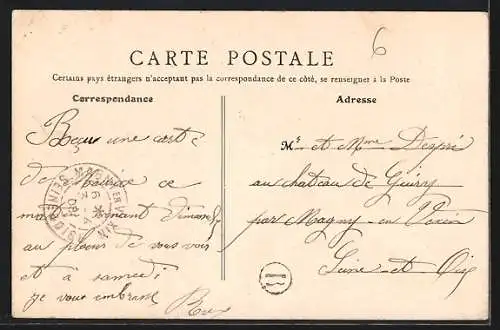 6
CARTE POSTALE
Certains pays étrangers n'acceptant pas la correspondance de ce côté, se renseigner à la Poste
Correspondance
Adresse
Reçu une carte
de Maurice ce
matin
au plaisir de vous voir
et à samedi
je vous embrasse
Mr et Mme Després
au chateau de Guiry
par Magny-en Vexin
Seine-et Oise
MAGNY-EN-VEXIN
SEINE-ET-OISE
B